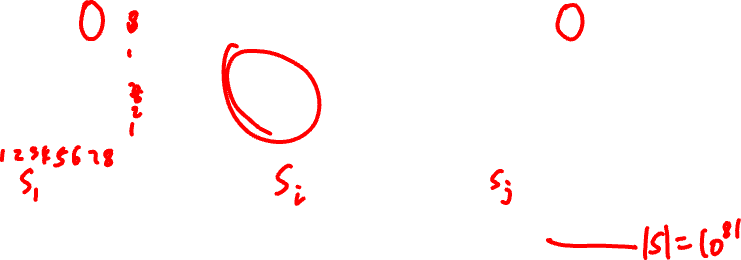 8
2
1
1 2 3 4 5 6 7 8
S₁
Sᵢ
Sⱼ
|S| = 10⁸¹